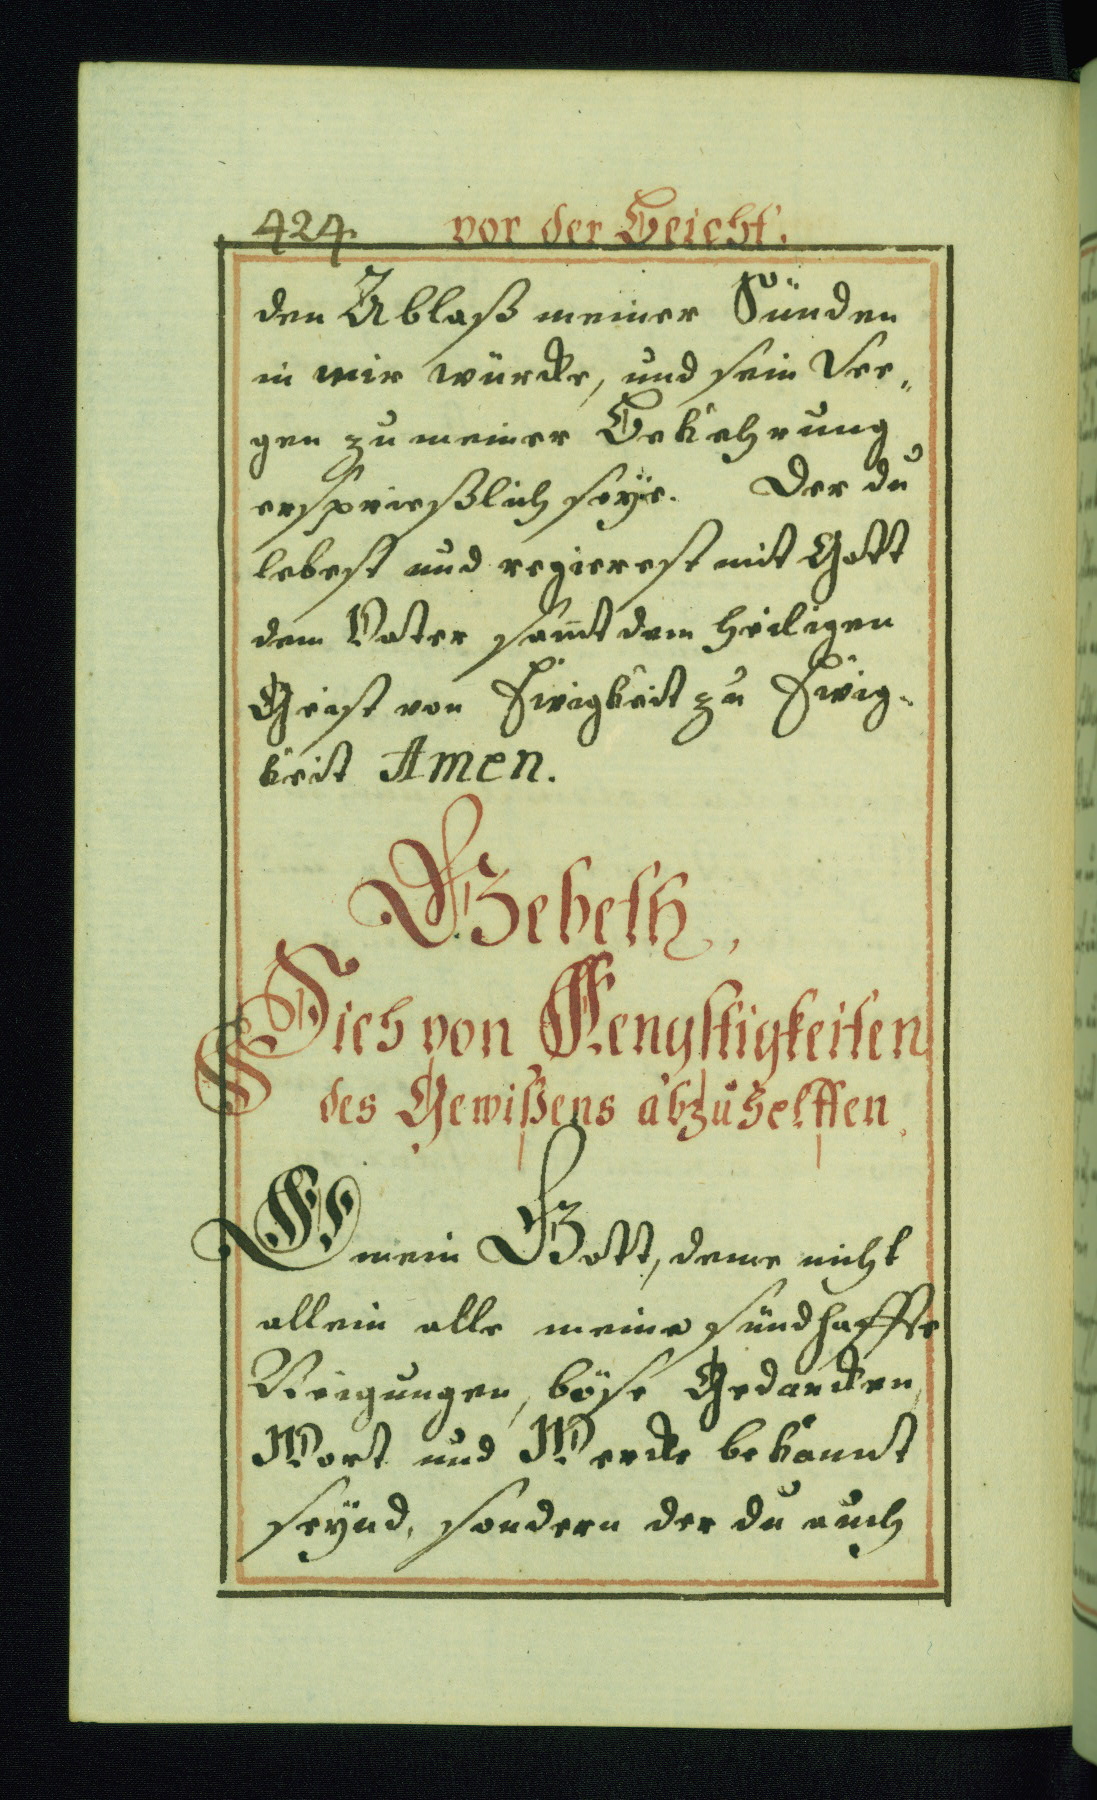 424. vor der Beicht.
den Ablaß meiner Sünden
in mir würcke, und sein See„
gen zu meiner Bekehrung
ersprießlich seÿe. Der du
lebest und regierest mit Gott
dem Vater samt dem heiligen
Geist von Ewigkeit zu Ewig„
keit Amen.
Gebeth,
Sich von Aengstigkeiten
des Gewißens abzuhelffen.
O mein Gott, deme nicht
allein alle meine sündhaffte
Neigungen, böse Gedancken,
Wort und Wercke bekannt
seÿnd, sondern der du auch